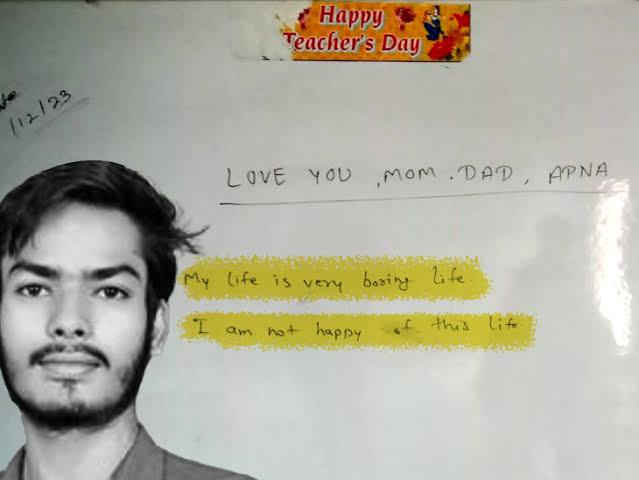 Happy
Teacher's Day
/12/23
LOVE YOU , MOM . DAD , APNA
My life is very boring life.
I am not happy of this life